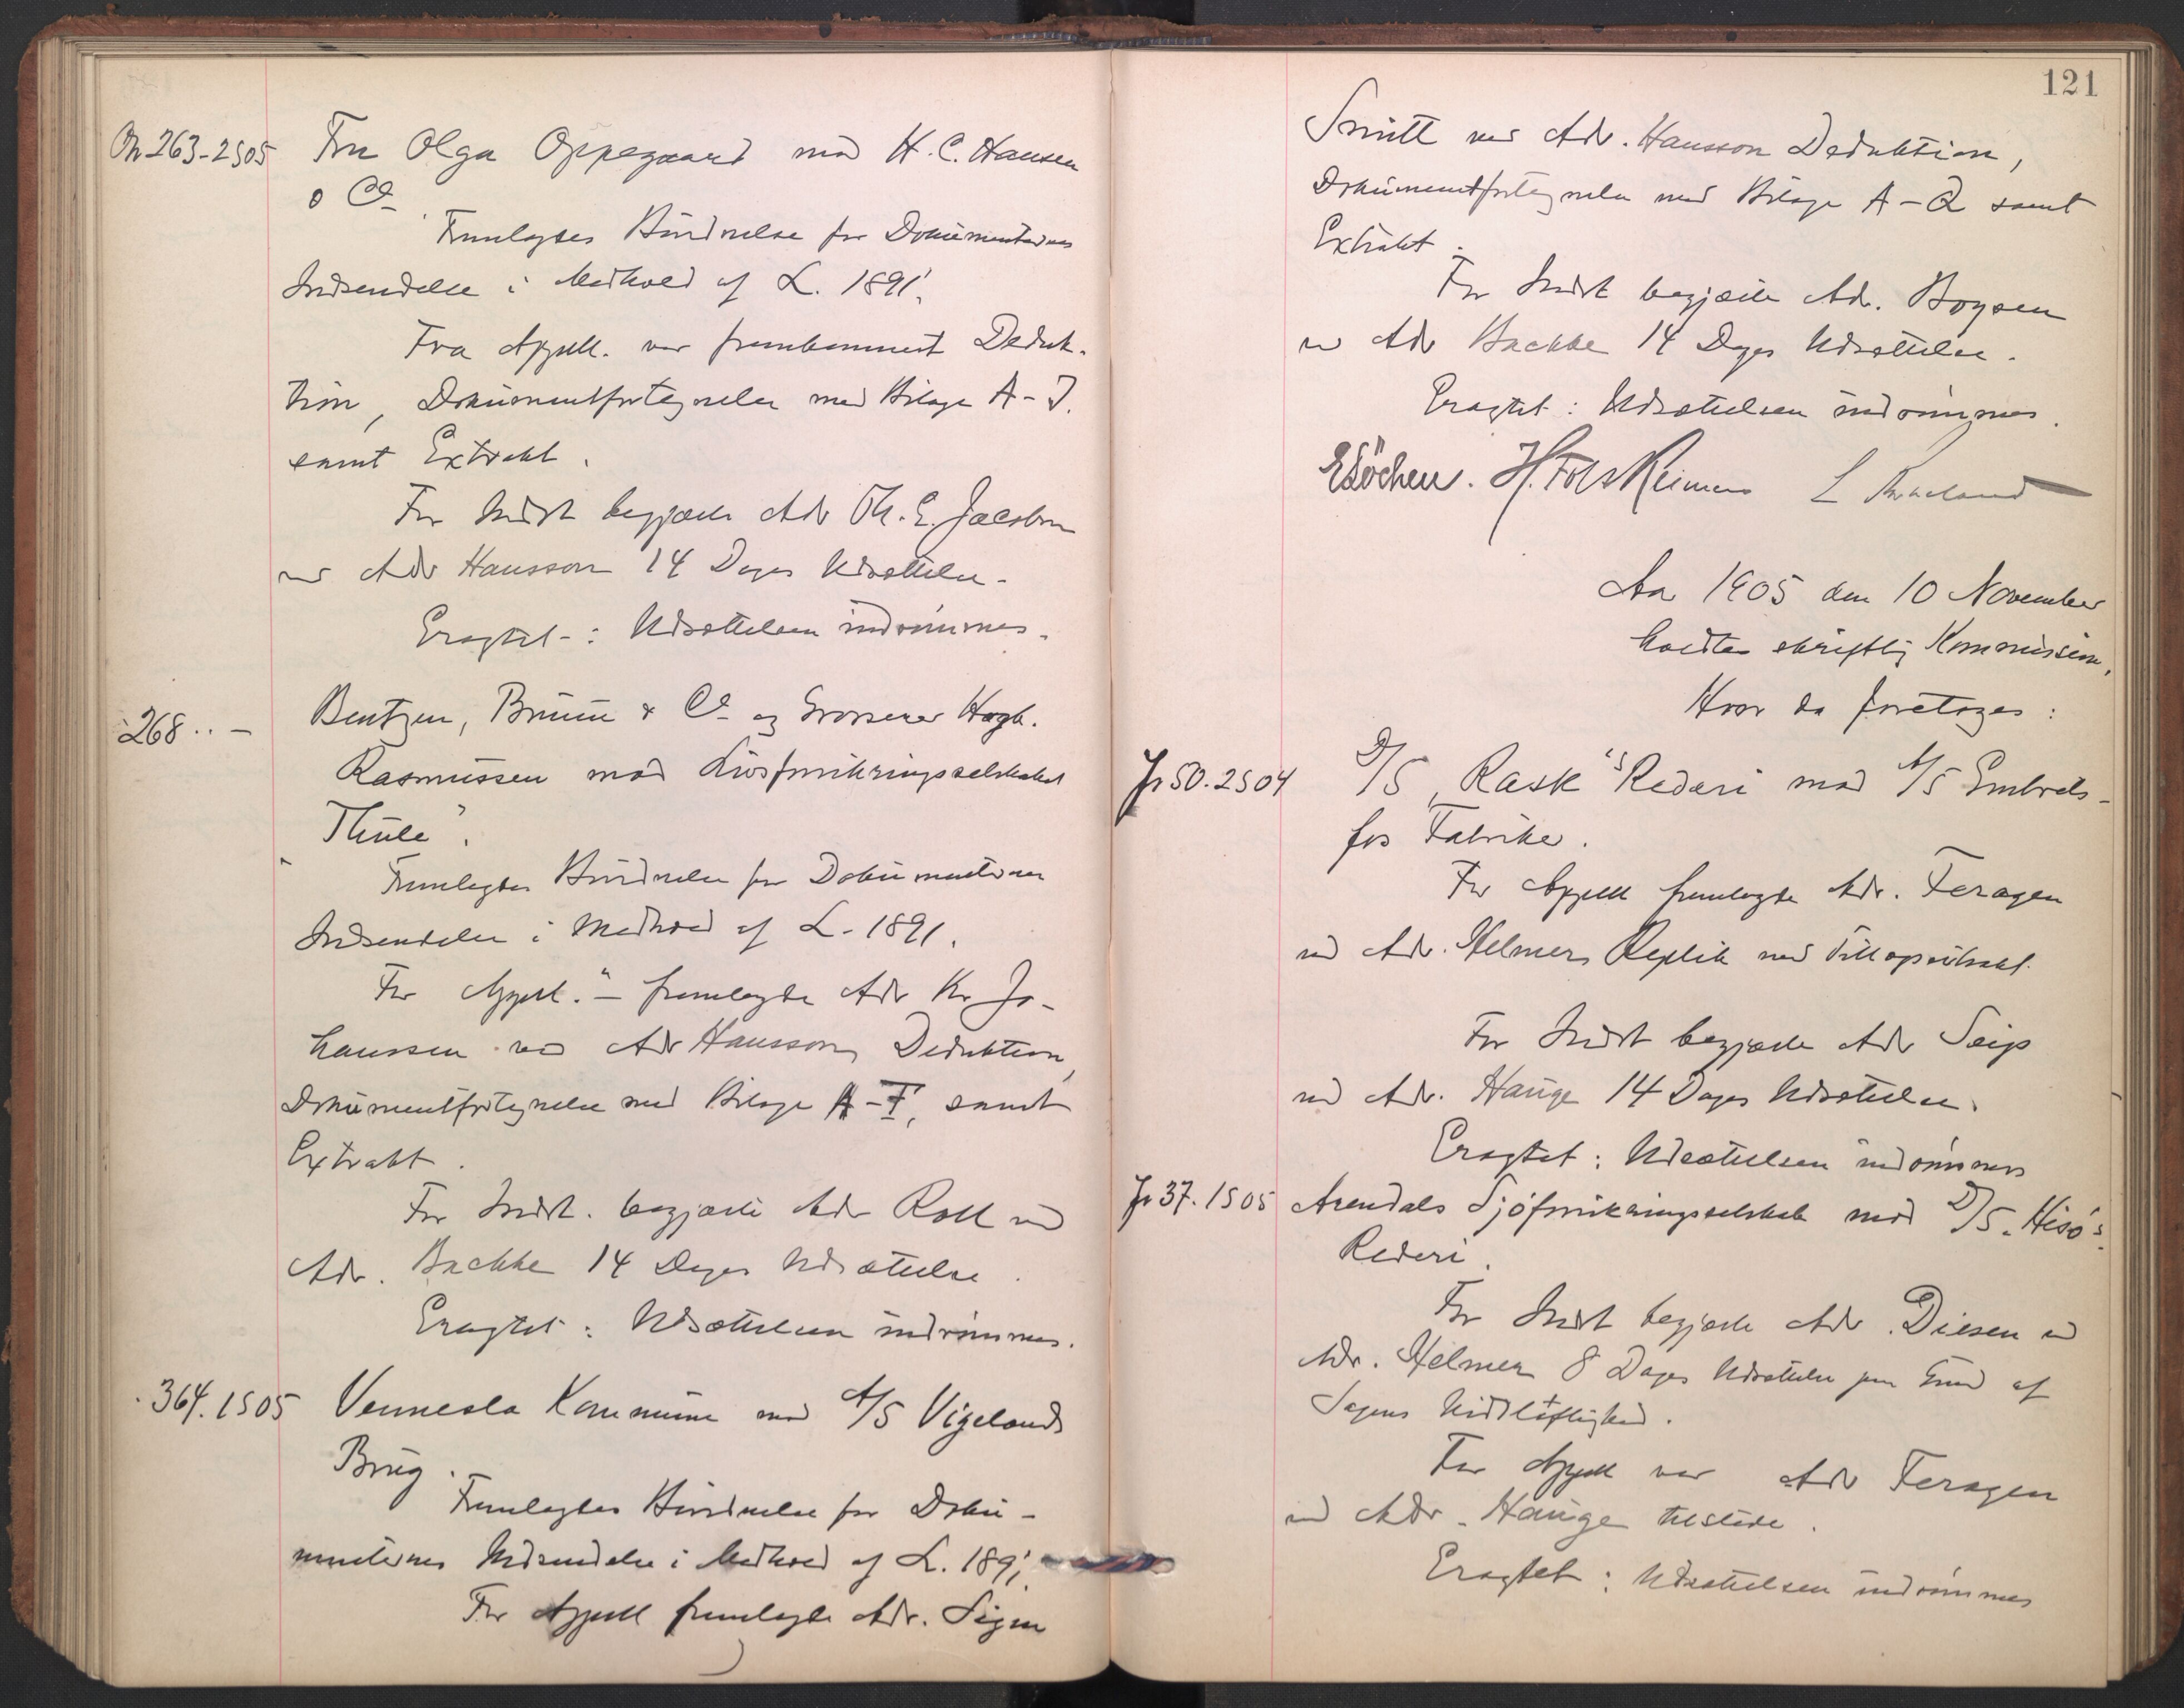 On 263-2S05 Fru Olga Oppegaard mod H. C. Hansen
o Co.
Fremlagdes Kundnelse for Dokumenternes
Indsendelse i Medhold af L. 1891.
Fra Appell. var fremkommet Deduk-
tion, Dokumentfortegnelse med Bilage A-J.
samt Extrakt.
For Indst. begjærte Adv Th. E. Jacobsen
ved Adv Hansson 14 Dages Udsættelse.
Eragtet: Udsættelsen indrømmes.
268 .. - Bentzen, Bruun & Co. og Grosserer Hagb.
Rasmussen mod Livsforsikringsselskabet
"Thule".
Fremlagdes Kundnelse for Dokumenternes
Indsendelse i Medhold af L. 1891.
For Appell. fremlagde Adv Kr Jo-
hanssen ved Adv Hansson Deduktion,
Dokumentfortegnelse med Bilage A-F, samt
Extrakt.
For Indst. begjærte Adv Roll ved
Adv. Bachke 14 Dages Udsættelse.
Eragtet: Udsættelsen indrømmes.
364. 1S05 Vennesla Kommune mod A/S Vigelands
Brug.
Fremlagdes Kundnelse for Doku-
menternes Indsendelse i Medhold af L. 1891.
For Appell fremlagde Adv. Sigm
121
Smitt ved Adv. Hansson Deduktion,
Dokumentfortegnelse med Bilage A-Q samt
Extrakt.
For Indst begjærte Adv. Boysen
ved Adv Bachke 14 Dages Udsættelse.
Eragtet: Udsættelsen indrømmes.
E Löchen. H. Reimers L
Aar 1905 den 10 November
holdtes skriftlig Kommission.
Hvor da foretoges:
Fr 50. 2S04 D/S "Rask"s Rederi mod A/S Embrets-
fos Fabriker.
For Appell fremlagde Adv. Feragen
ved Adv. Helmers Replik med
For Indst begjærte Adv Seip
ved Adv. Hauge 14 Dages Udsættelse.
Eragtet: Udsættelsen indrømmes
Fr 37. 1S05 Arendals Sjöforsikringsselskab mod D/S "Hisö"s
Rederi.
For Indst begjærte Adv. Diesen ved
Adv. Helmer 8 Dages Udsættelse paa Grund af
Sagens Vidtløftighed.
For Appell var Adv Feragen
ved Adv. Hauge tilstede.
Eragtet: Udsættelsen indrømmes